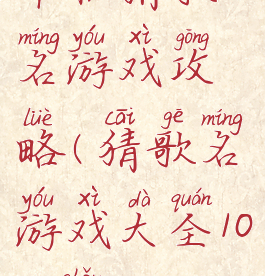 míng yóu xì gōng
名游戏攻
lüè cāi gē míng
略(猜歌名
yóu xì dà quán
游戏大全10